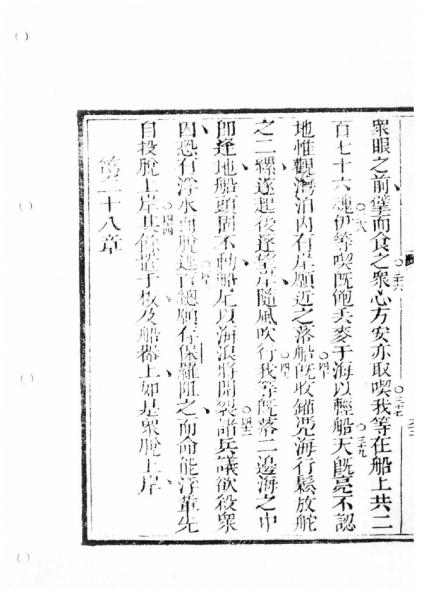 衆眼之前擘而食之衆心方安亦取喫我等在船上共二
百七十六魂伊等喫既飽丟麥于海以輕船天既亮不認
地惟觀海泊內有岸願近之落船既收錨凭海行鬆放舵
之二縲遂起後逢岸隨風吹行我等既落二邊海之中
即逢地船頭固不動船尾以海浪將開裂諸兵議欲殺衆
囚恐有浮水而脫逃百總願存保羅阻之而命能浮輩先
自投脫上岸其餘置于板及船器上如是衆脫上岸
第二十八章